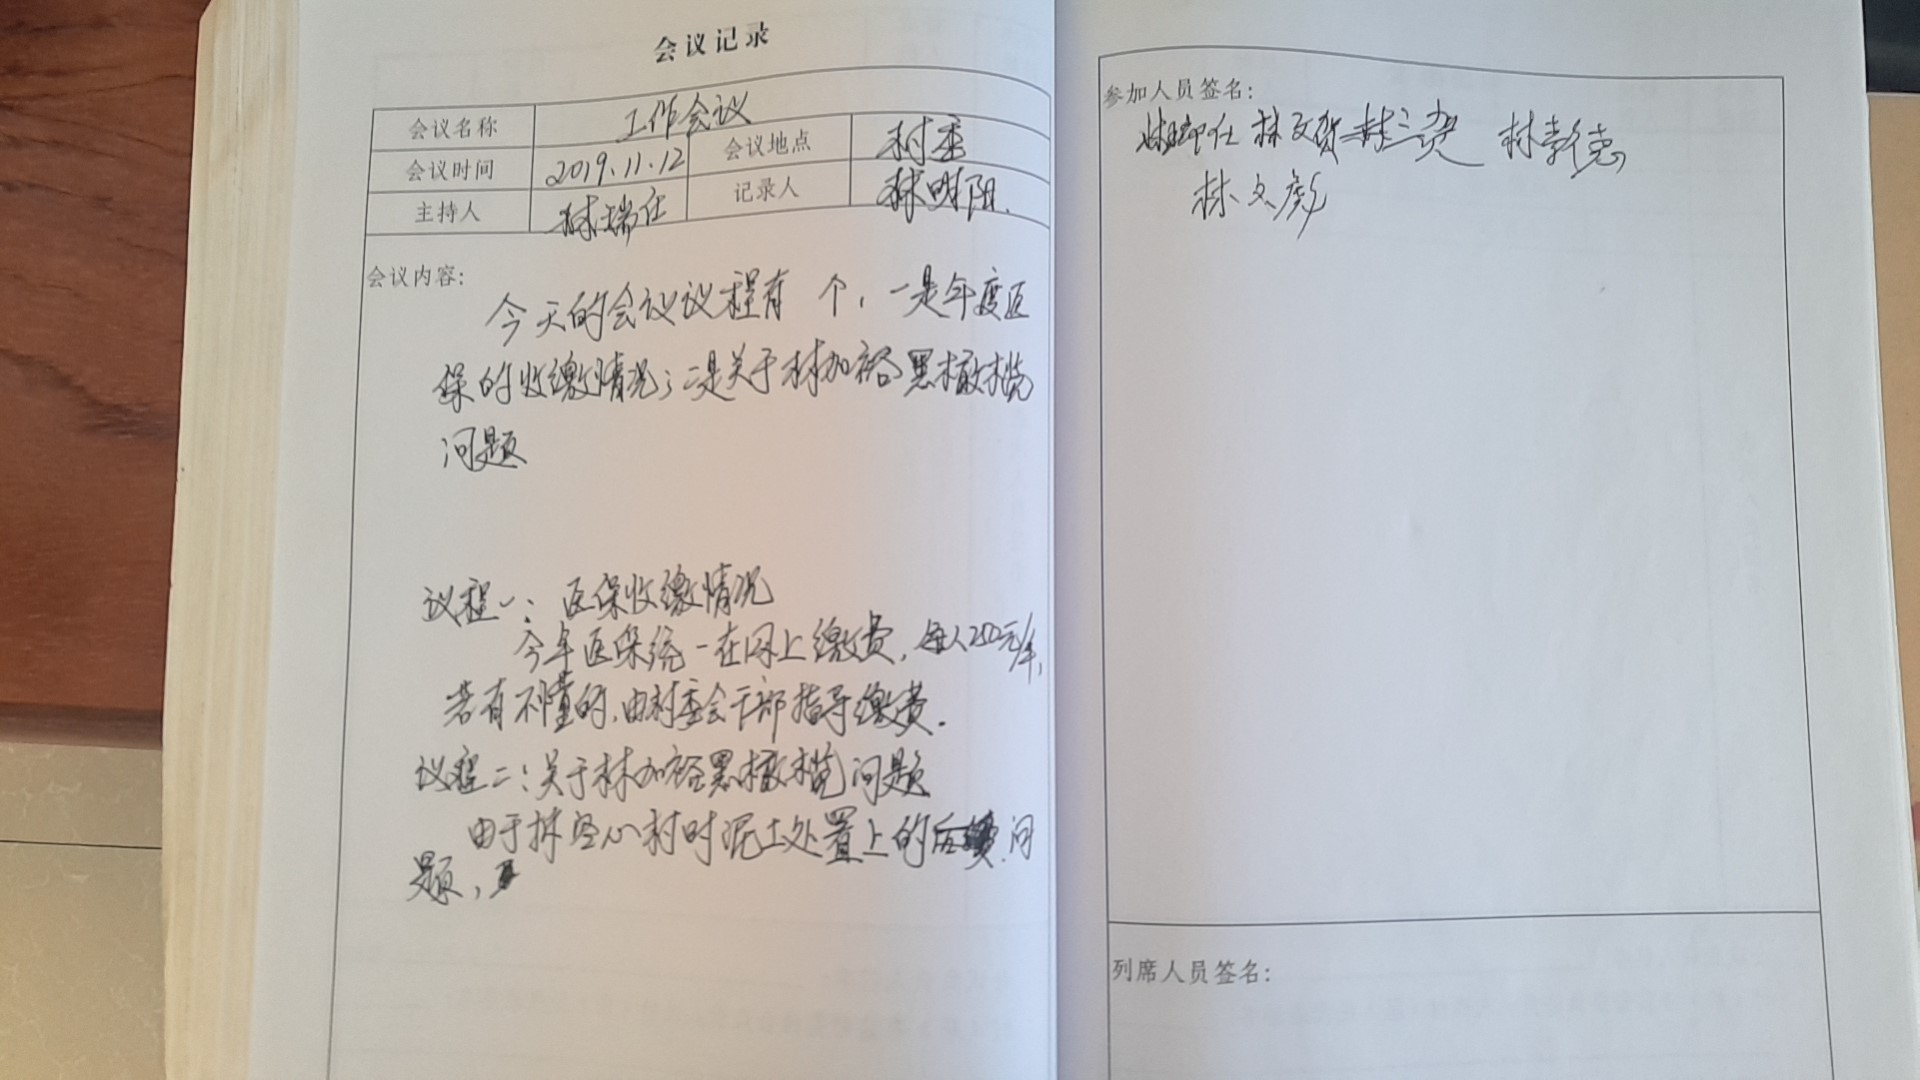 会议记录
会议名称 工作会议
会议时间 2019.11.12 会议地点 村委
主持人 林瑞仕 记录人 林明阳.
会议内容:
今天的会议议程有 个,一是年度医
保的收缴情况;二是关于林加裕黑橄榄
问题
议程一:医保收缴情况
今年医保统一在网上缴费,每人250元/年,
若有不懂的,由村委会干部指导缴费.
议程二:关于林加裕黑橄榄问题
由于林坚心村时泥土处置上的后续问
题,
参加人员签名:
林瑞仕 林文贤 林 林
林文彪
列席人员签名: